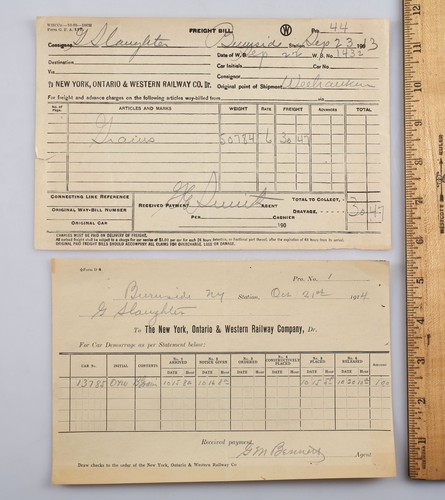 FREIGHT BILL.
W
Pro 44
Consignee G Slaughter
Burnside Station, Sep 23 1903
Date of W. B. Sep 22 W. B. No. 1435
Destination
Car Initials Car No.
Via
Consignor
To NEW YORK, ONTARIO & WESTERN RAILWAY CO. Dr.
Original point of Shipment Weehawken
For freight and advance charges on the following articles way-billed from
No. of Pkgs. ARTICLES AND MARKS WEIGHT RATE FREIGHT ADVANCES TOTAL
Grains 50784 6 30 47
CONNECTING LINE REFERENCE
ORIGINAL WAY-BILL NUMBER
ORIGINAL CAR
RECEIVED PAYMENT AGENT
PER CASHIER
190
TOTAL TO COLLECT,
DRAYAGE, 30 47
CHARGES MUST BE PAID ON DELIVERY OF FREIGHT.
ORIGINAL PAID FREIGHT BILLS SHOULD ACCOMPANY ALL CLAIMS FOR OVERCHARGE, LOSS OR DAMAGE.
Pro. No. 1
Burnside NY Station, Oct 21st 1914
G Slaughter
To The New York, Ontario & Western Railway Company, Dr.
For Car Demurrage as per Statement below:
CAR NO. INITIAL CONTENTS No. 1 ARRIVED No. 2 NOTICE GIVEN No. 3 ORDERED No. 4 CONSTRUCTIVELY PLACED No. 5 PLACED No. 6 RELEASED
DATE Hour DATE Hour DATE Hour DATE Hour DATE Hour DATE Hour
13785
Received payment,
Agent
Draw checks to the order of the New York, Ontario & Western Railway Co
12
11
10
9
8
7
6
5
4
3